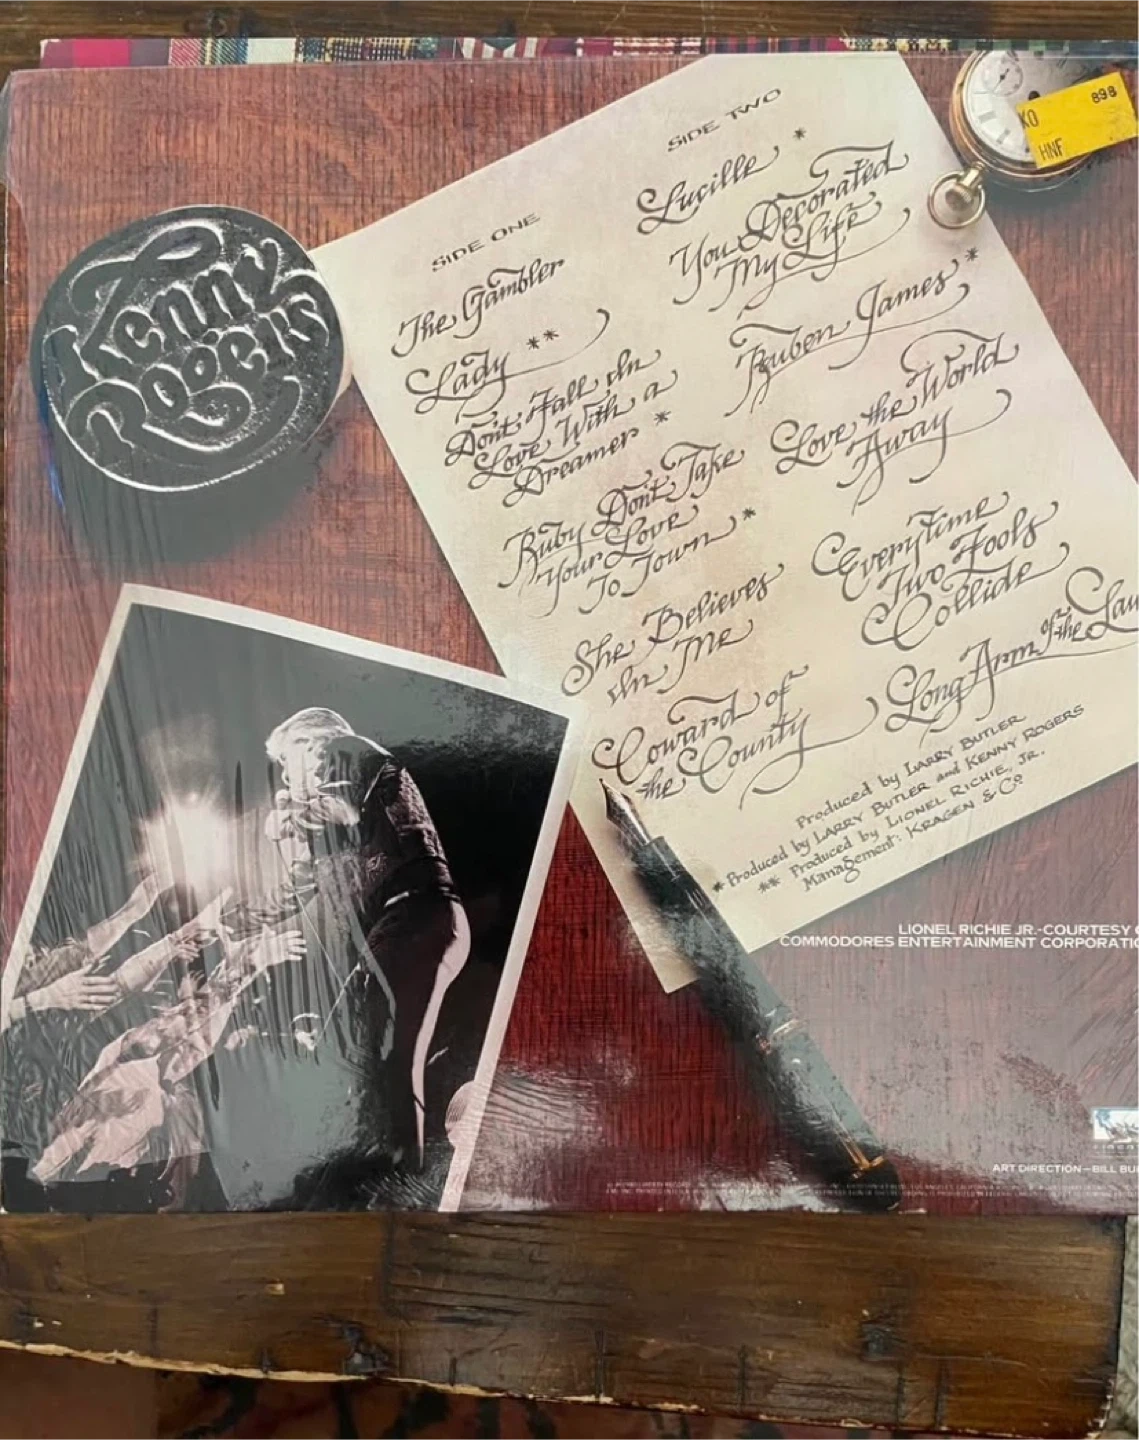 Kenny
Rogers
SIDE ONE
The Gambler
Lady **
Don't Fall In
Love With a
Dreamer *
Ruby Don't Take
Your Love
To Town *
She Believes
In Me
Coward of
the County
SIDE TWO
Lucille *
You Decorated
My Life
Reuben James *
Love the World
Away
Everytime
Two Fools
Collide
Long Arm of the Law
Produced by LARRY BUTLER
* Produced by LARRY BUTLER and KENNY ROGERS
** Produced by LIONEL RICHIE, JR.
Management: KRAGEN & Co
KO 898
HNF
LIONEL RICHIE JR.-COURTESY
COMMODORES ENTERTAINMENT CORPORATIO
ART DIRECTION—BILL BU